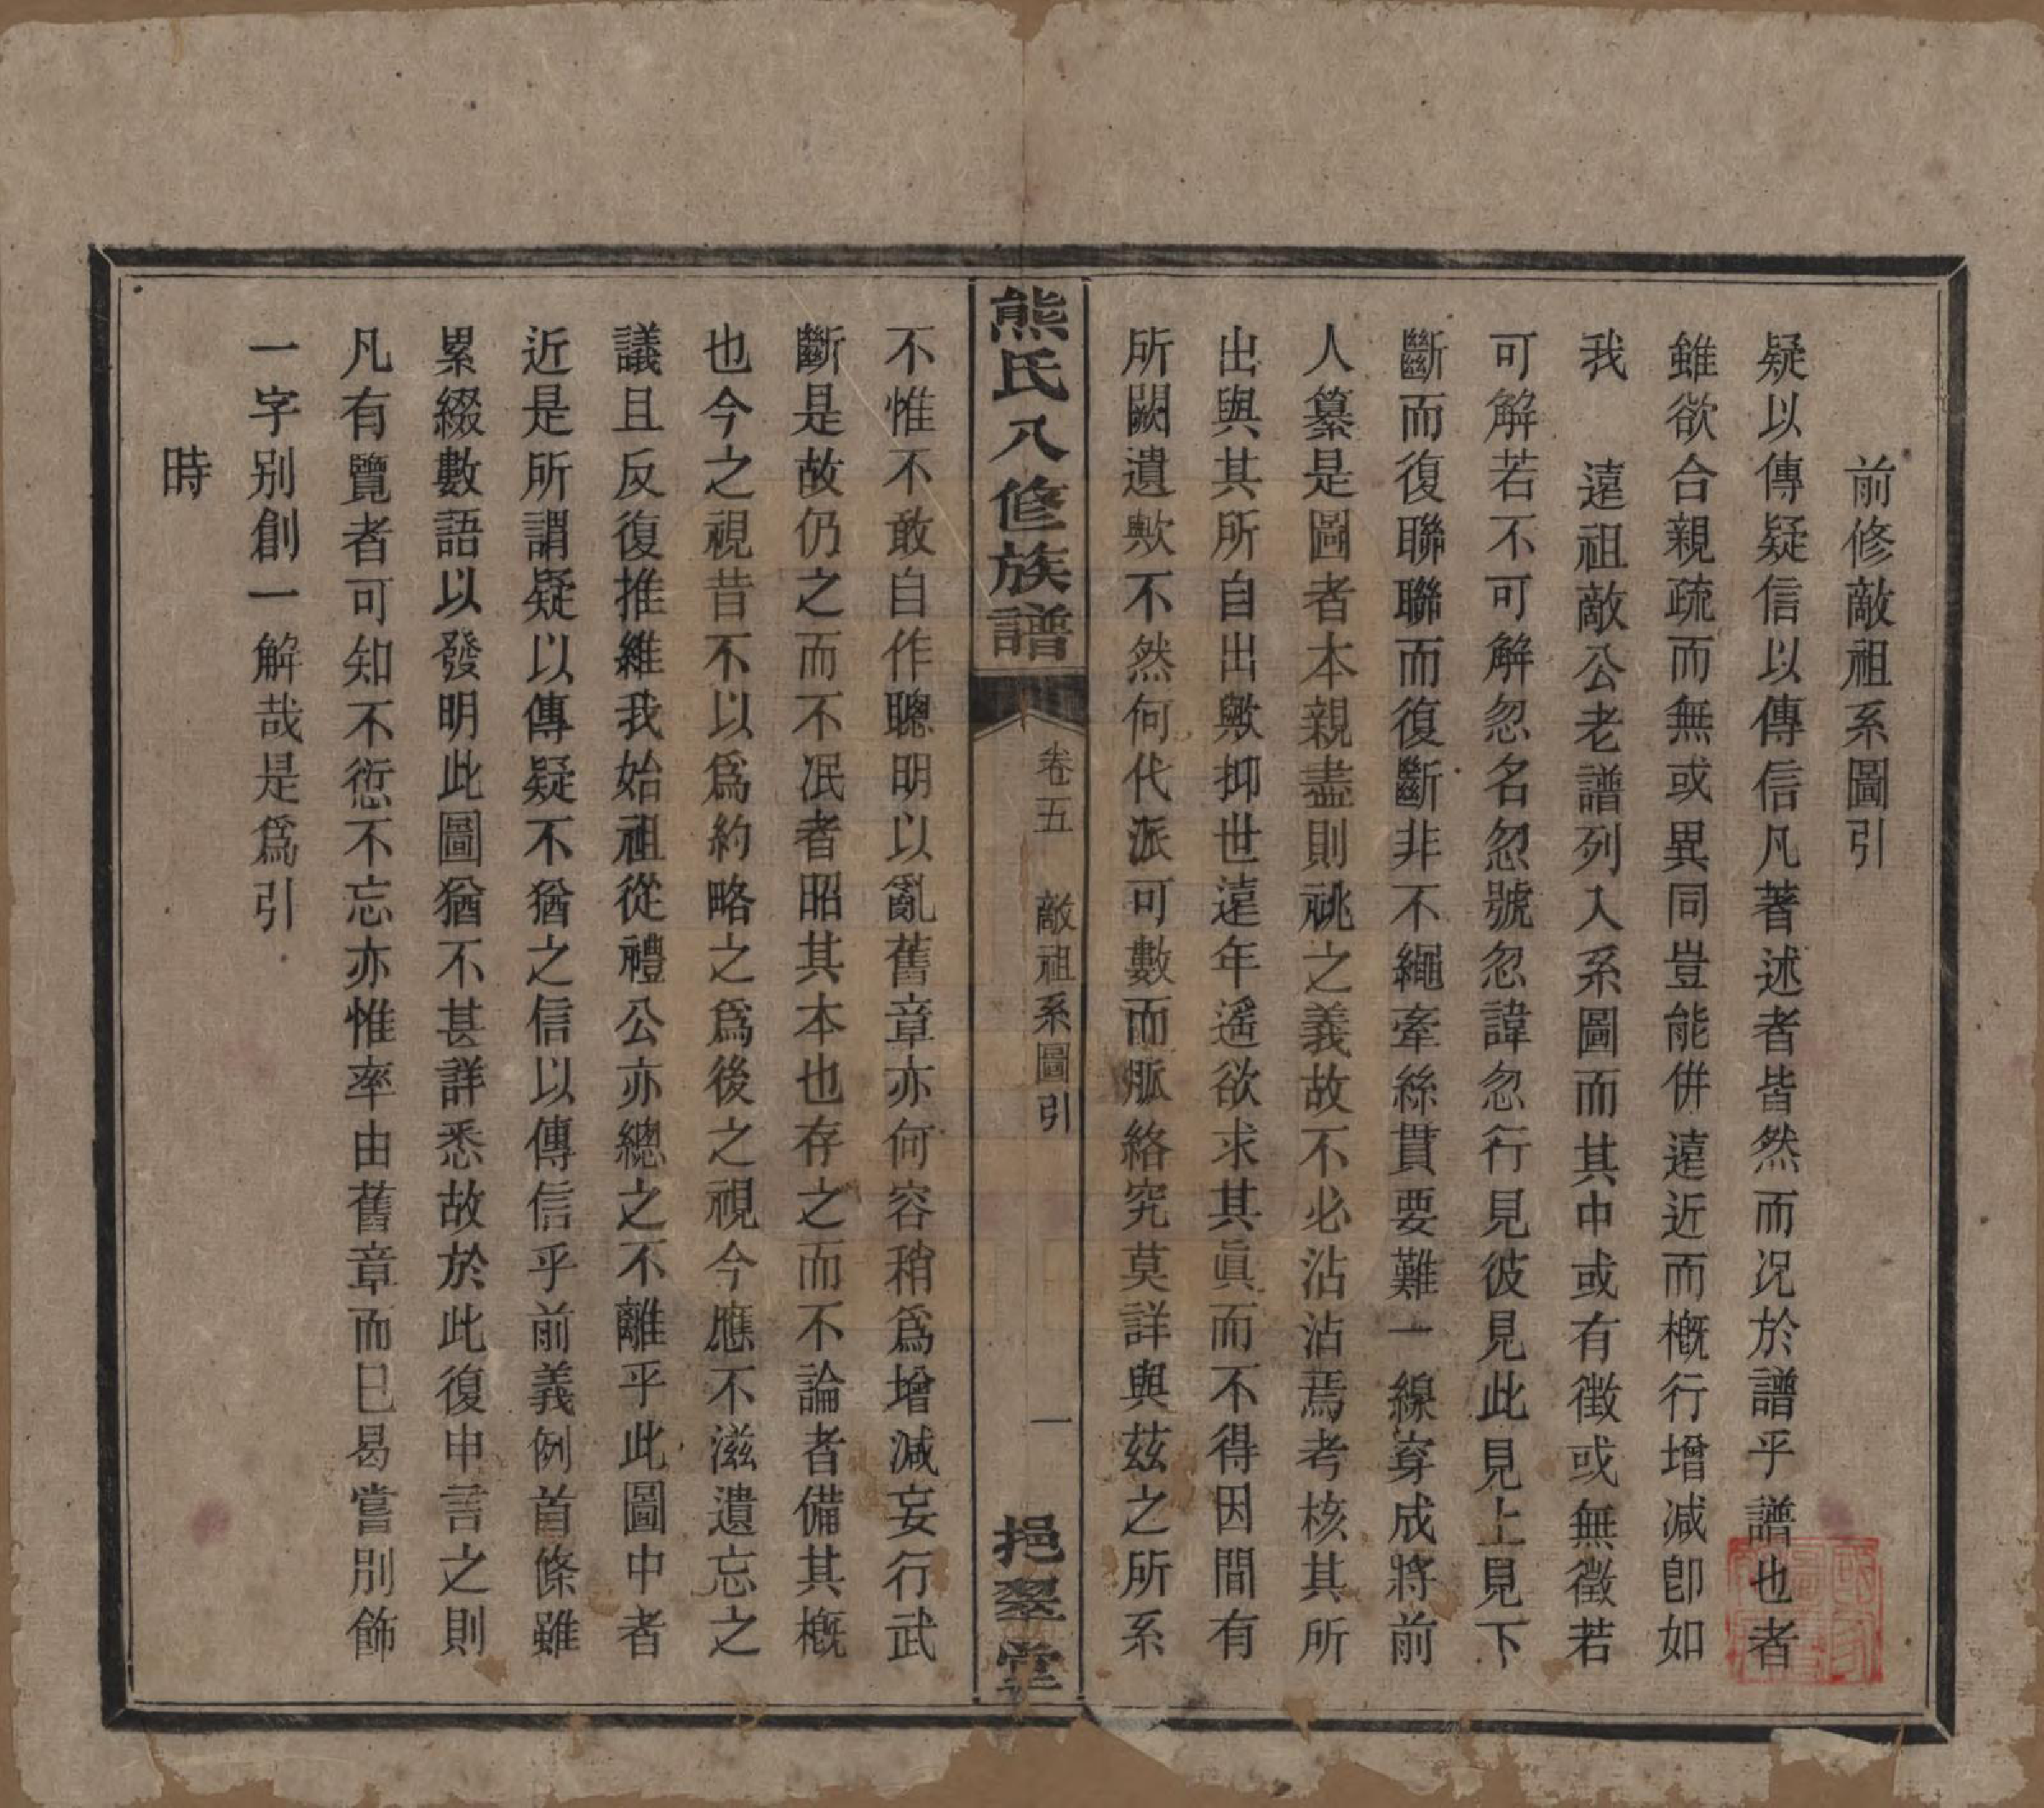 前修敵祖系圖引
疑以傳疑信以傳信凡著述者皆然而况於譜乎譜也者
雖欲合親疏而無或異同豈能併遠近而槪行增减卽如
我　遠祖敵公老譜列入系圖而其中或有徵或無徵若
可解若不可解忽名忽號忽諱忽行見彼見此見上見下
斷而復聯聯而復斷非不繩牽絲貫要難一線穿成將前
人纂是圖者本親盡則祧之義故不必沾沾焉考核其所
出與其所自出歟抑世遠年遙欲求其眞而不得因間有
所闕遺歟不然何代派可數而脈絡究莫詳與茲之所系
熊氏八修族譜
卷五　敵祖系圖引
一
挹翠堂
不惟不敢自作聰明以亂舊章亦何容稍爲增減妄行武
斷是故仍之而不泯者昭其本也存之而不論者備其槪
也今之視昔不以爲約略之爲後之視今應不滋遺忘之
議且反復推維我始祖從禮公亦總之不離乎此圖中者
近是所謂疑以傳疑不猶之信以傳信乎前義例首條雖
累綴數語以發明此圖猶不甚詳悉故於此復申言之則
凡有覽者可知不愆不忘亦惟率由舊章而已曷嘗別飾
一字别創一解哉是爲引
時